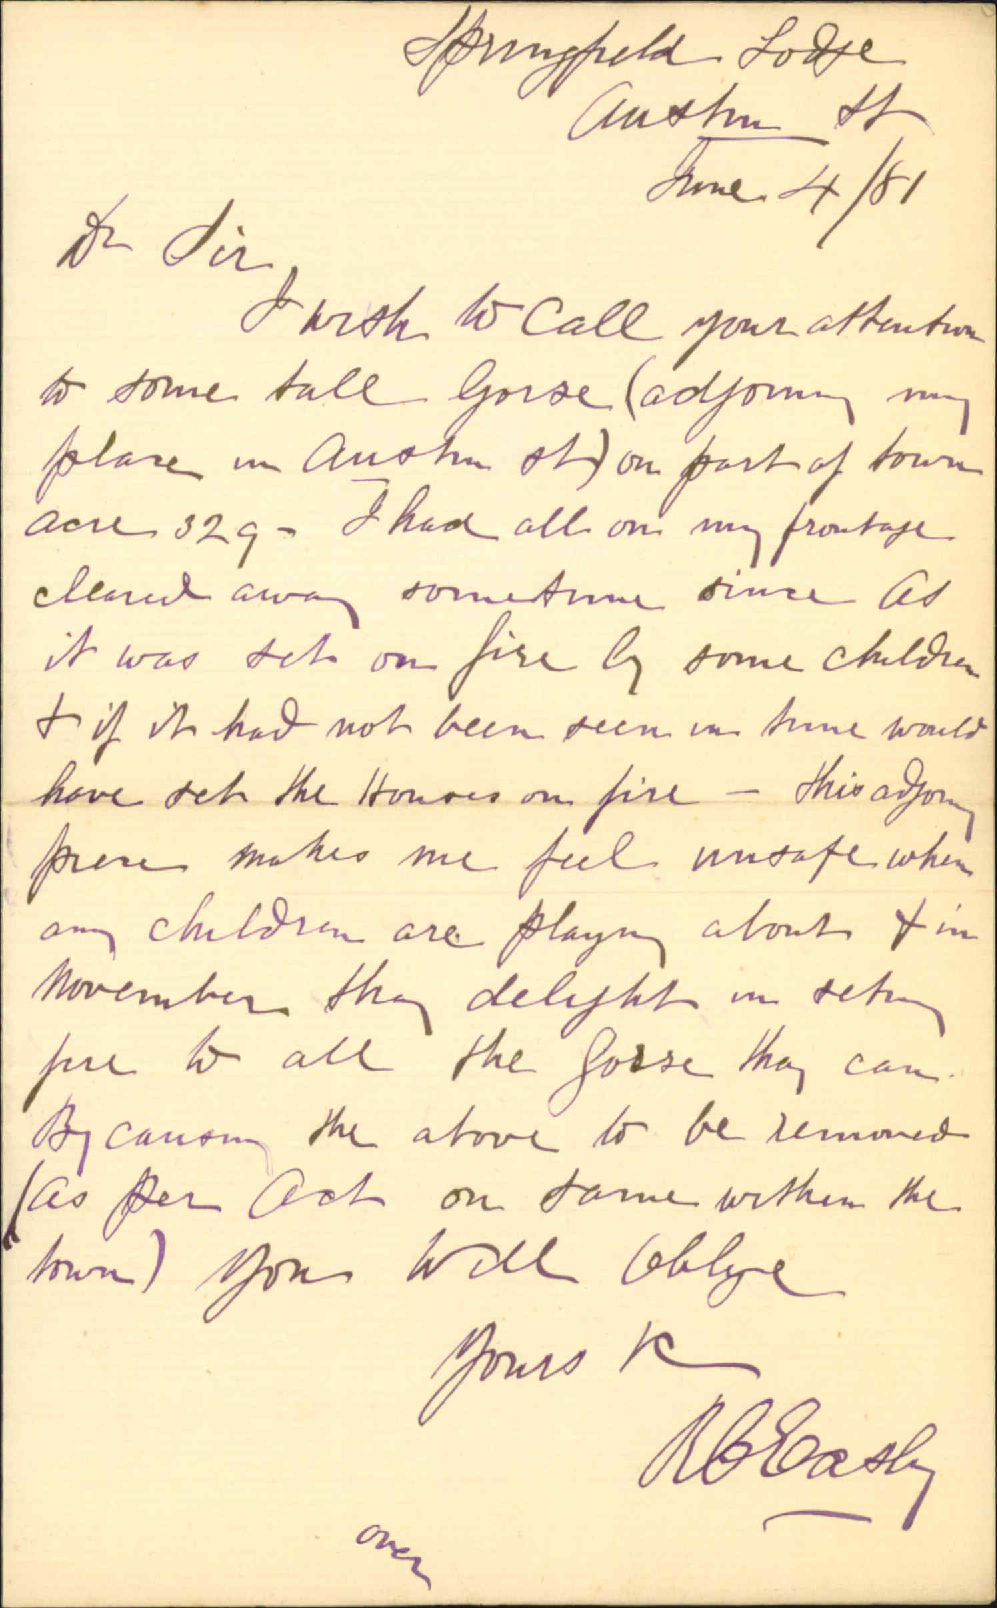 Springfield Lodge
Austin St
June 4/81
Dr Sir,
I wish to call your attention
to some tall Gorse (adjoining my
place in Austin st) on part of town
acre 329 - I had all on my frontage
cleared away sometime since as
it was set on fire by some children
& if it had not been seen in time would
have set the Houses on fire — this adjoing
piece makes me feel unsafe when
any children are playing about & in
November they delight in seting
fire to all the Gorse they can.
By causing the above to be removed
(as per Act on same within the
town) you will oblige
Yours
Easby
over